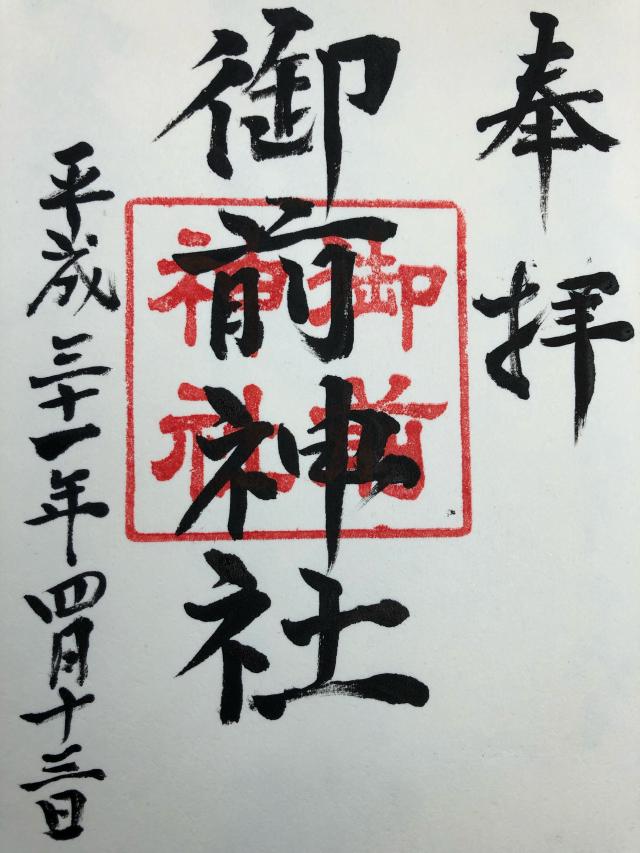 奉拝
御前神社
御前
神社
平成三十一年四月十三日